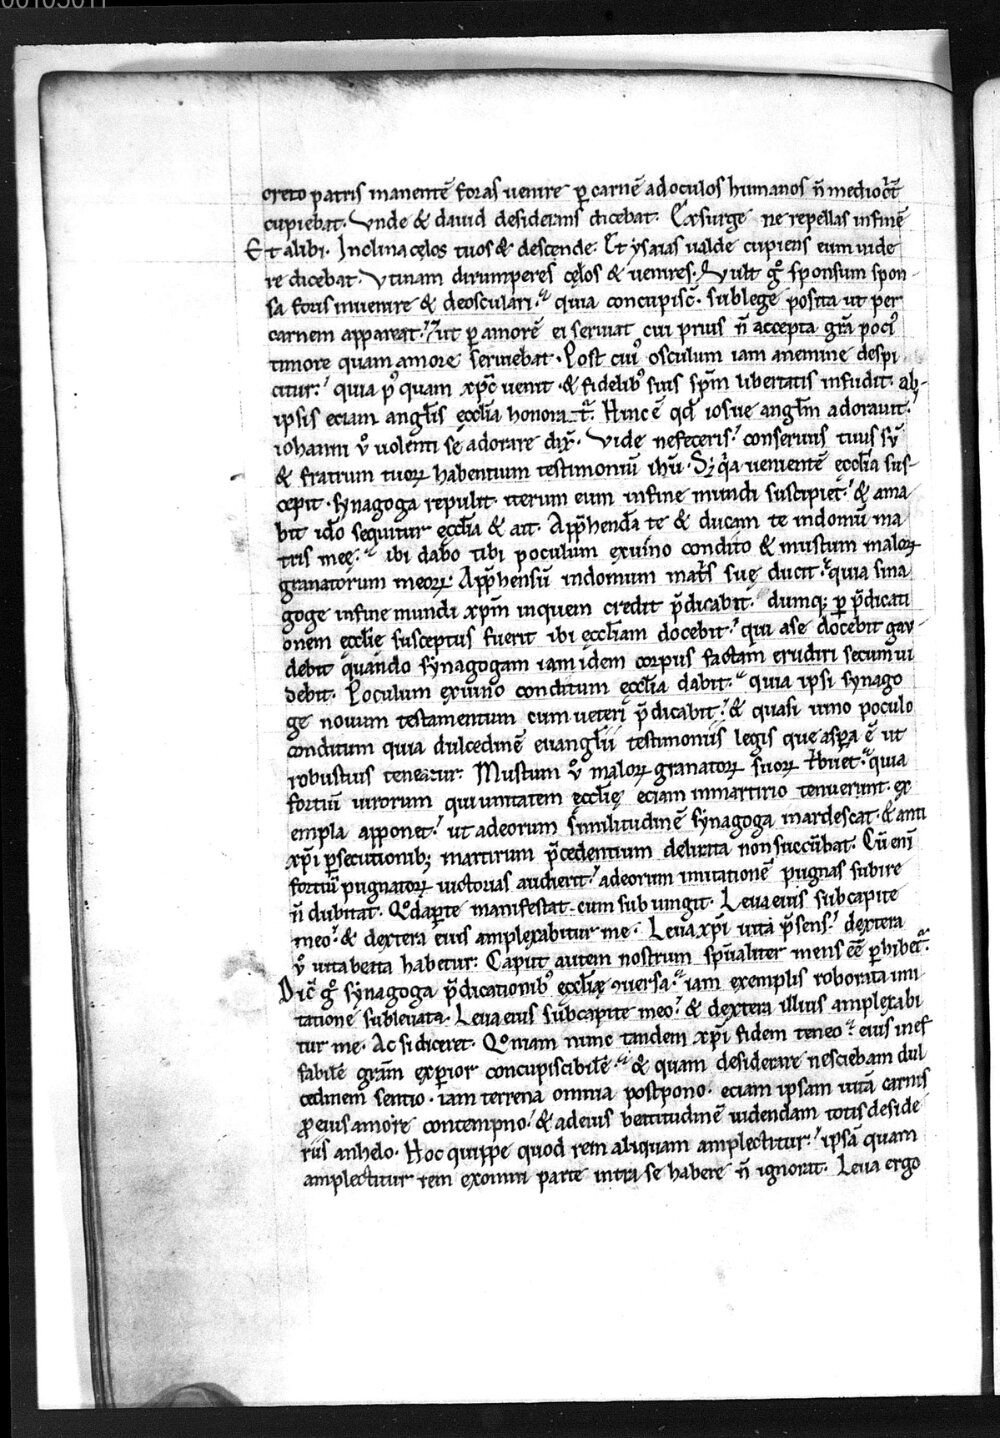 creto patris manentē foras uenire ꝑ carnē ad oculos humanos n̄ medioct̄
cupiebat. Vnde & dauid desiderans dicebat. Exsurge ne repellas infinē
Et alibi. Inclina cęlos tuos & descende. Et ysaias ualde cupiens eum uide
re dicebat. Vtinam dirumperes cęlos & uenires. Vult gͦ sponsum spon
sa foris inuenire & deosculari. quia concupisc̄. sub lege posita ut per
carnem appareat. ut ꝑ amorē ei seruiat cui prius n̄ accepta grā poci᷒
timore quam amore seruiebat. Post cui᷒ osculum iam a nemine despi
citur. quia p᷒ quam xp̄c uenit & fidelib᷒ suis sp̄m libertatis infudit. ab
ipsis eciam angl̄is ęccl̄ia honorat̄. Hinc ē qd̄ iosue angl̄m adorauit.
iohanni u᷒ uolenti se adorare dix̄. Vide ne feceris. conseruus tuus sū
& fratrum tuoꝝ habentium testimoniū ih̄u. S; q̄a uenientē eccl̄ia sus
cepit. synagoga repulit. iterum eum in fine mundi suscipiet. & ama
bit. id̄o sequitur ęccl̄ia & ait. App̄hendā te & ducam te in domū ma
tris meę. ibi dabo tibi poculum ex uino condito & mustum maloꝝ
granatorum meoꝝ. App̄hensū in domum mat̄s suę ducit. quia sina
goge in fine mundi xp̄m in quem credit p̄dicabit. dumq; ꝑ p̄dicati
onem ęccl̄ie susceptus fuerit ibi ęccl̄iam docebit. qui a se docebit gau
debit quando synagogam iam idem corpus factam erudiri secum ui
debit. Poculum ex uino conditum ęccl̄ia dabit. quia ipsi synago
ge nouum testamentum cum ueteri p̄dicabit. & quasi uino poculo
conditum quia dulcedinē euangl̄ii testimoniis legis que asꝑa ē ut
robustius teneatur. Mustum u᷒ maloꝝ granatoꝝ suoꝝ t̄buet. quia
fortiū uirorum qui unitatem ęccl̄ię eciam in martirio tenuerunt. ex
empla apponet. ut ad eorum similitudinē synagoga inardescat. & anti
xp̄i ꝑsecutionib; martirum p̄cedentium delirita non succūbat. Cū enī
fortiū pugnatoꝝ uictorias audierit. ad eorum imitationē pugnas subire
n̄ dubitat. Qd̄ aperte manifestat cum subiungit. Leua eius sub capite
meo. & dextera eius amplexabitur me. Leua xp̄i uita p̄sens. dextera
u᷒ uita beata habetur. Caput autem nostrum sp̄ualiter mens eē ꝑhibet̄.
Dic̄ gͦ synagoga p̄dicationib᷒ ęccl̄ię ꝯuersa. iam exemplis roborata imi
tatione subleuata. Leua eius sub capite meo. & dextera illius amplexabi
tur me. Ac si diceret. Qͦniam nunc tandem xp̄i fidem teneo. eius inef
fabilē grām exꝑior concupiscibilē. & quam desiderare nesciebam dul
cedinem sentio. iam terrena omnia postpono. eciam ipsam uitā carnis
ꝓ eius amore contempno. & ad eius beatitudinē uidendam totis deside
riis anhelo. Hoc quippe quod rem aliquam amplectitur. ipsā quam
amplectitur rem ex omni parte intra se habere n̄ ignorat. Leua ergo